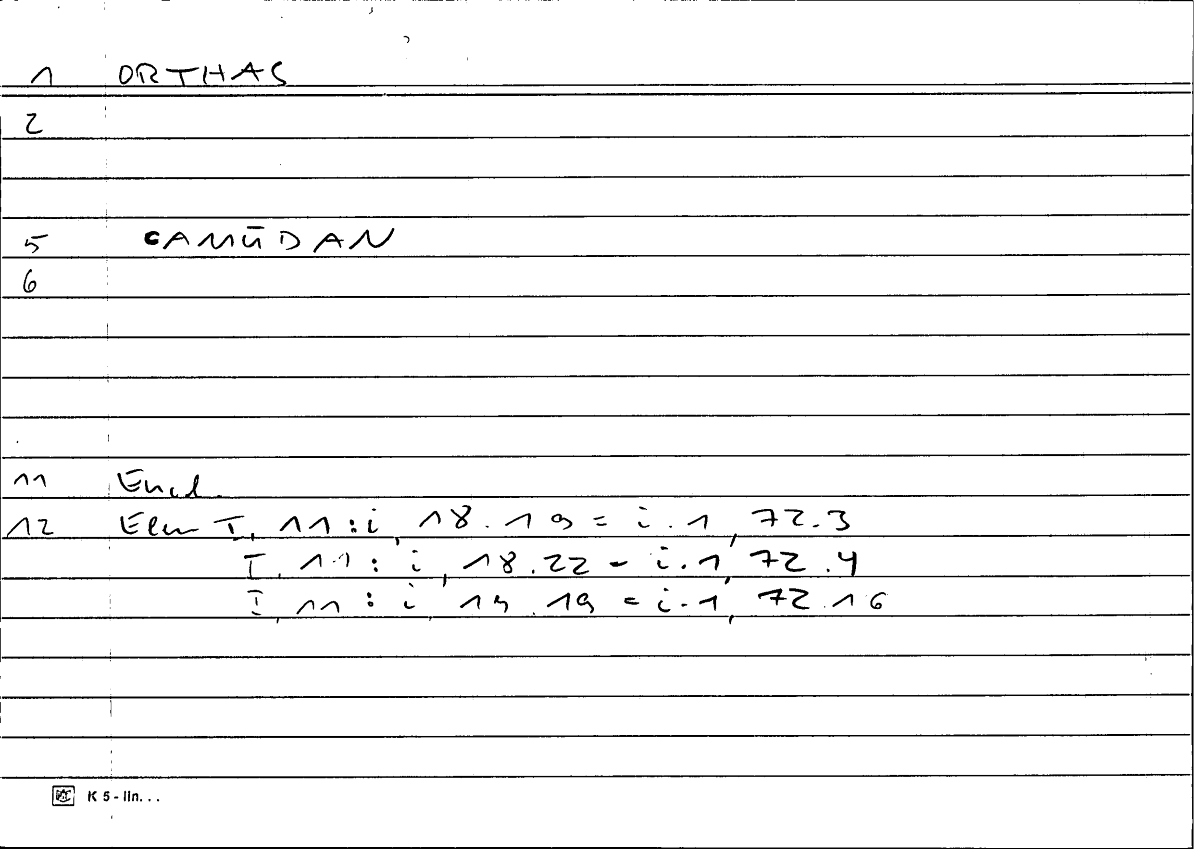 1 ORTHAS
2
5 CAMŪDAN
6
11 Encl.
12 Elem I, 11:i, 18.19 = i.1, 72.3
I, 11: i, 18.22 = i.1, 72.4
I, 11: i, 19.19 = i.1, 72.16
K 5 - lin. . .